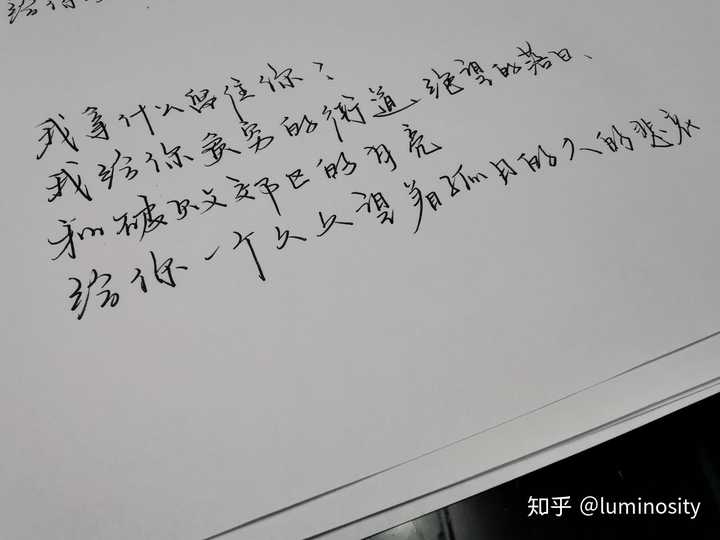 给你
我拿什么留住你？
我给你贫穷的街道、绝望的落日、
和破败郊区的月亮
给你一个久久望着孤月的人的悲哀
知乎 @luminosity